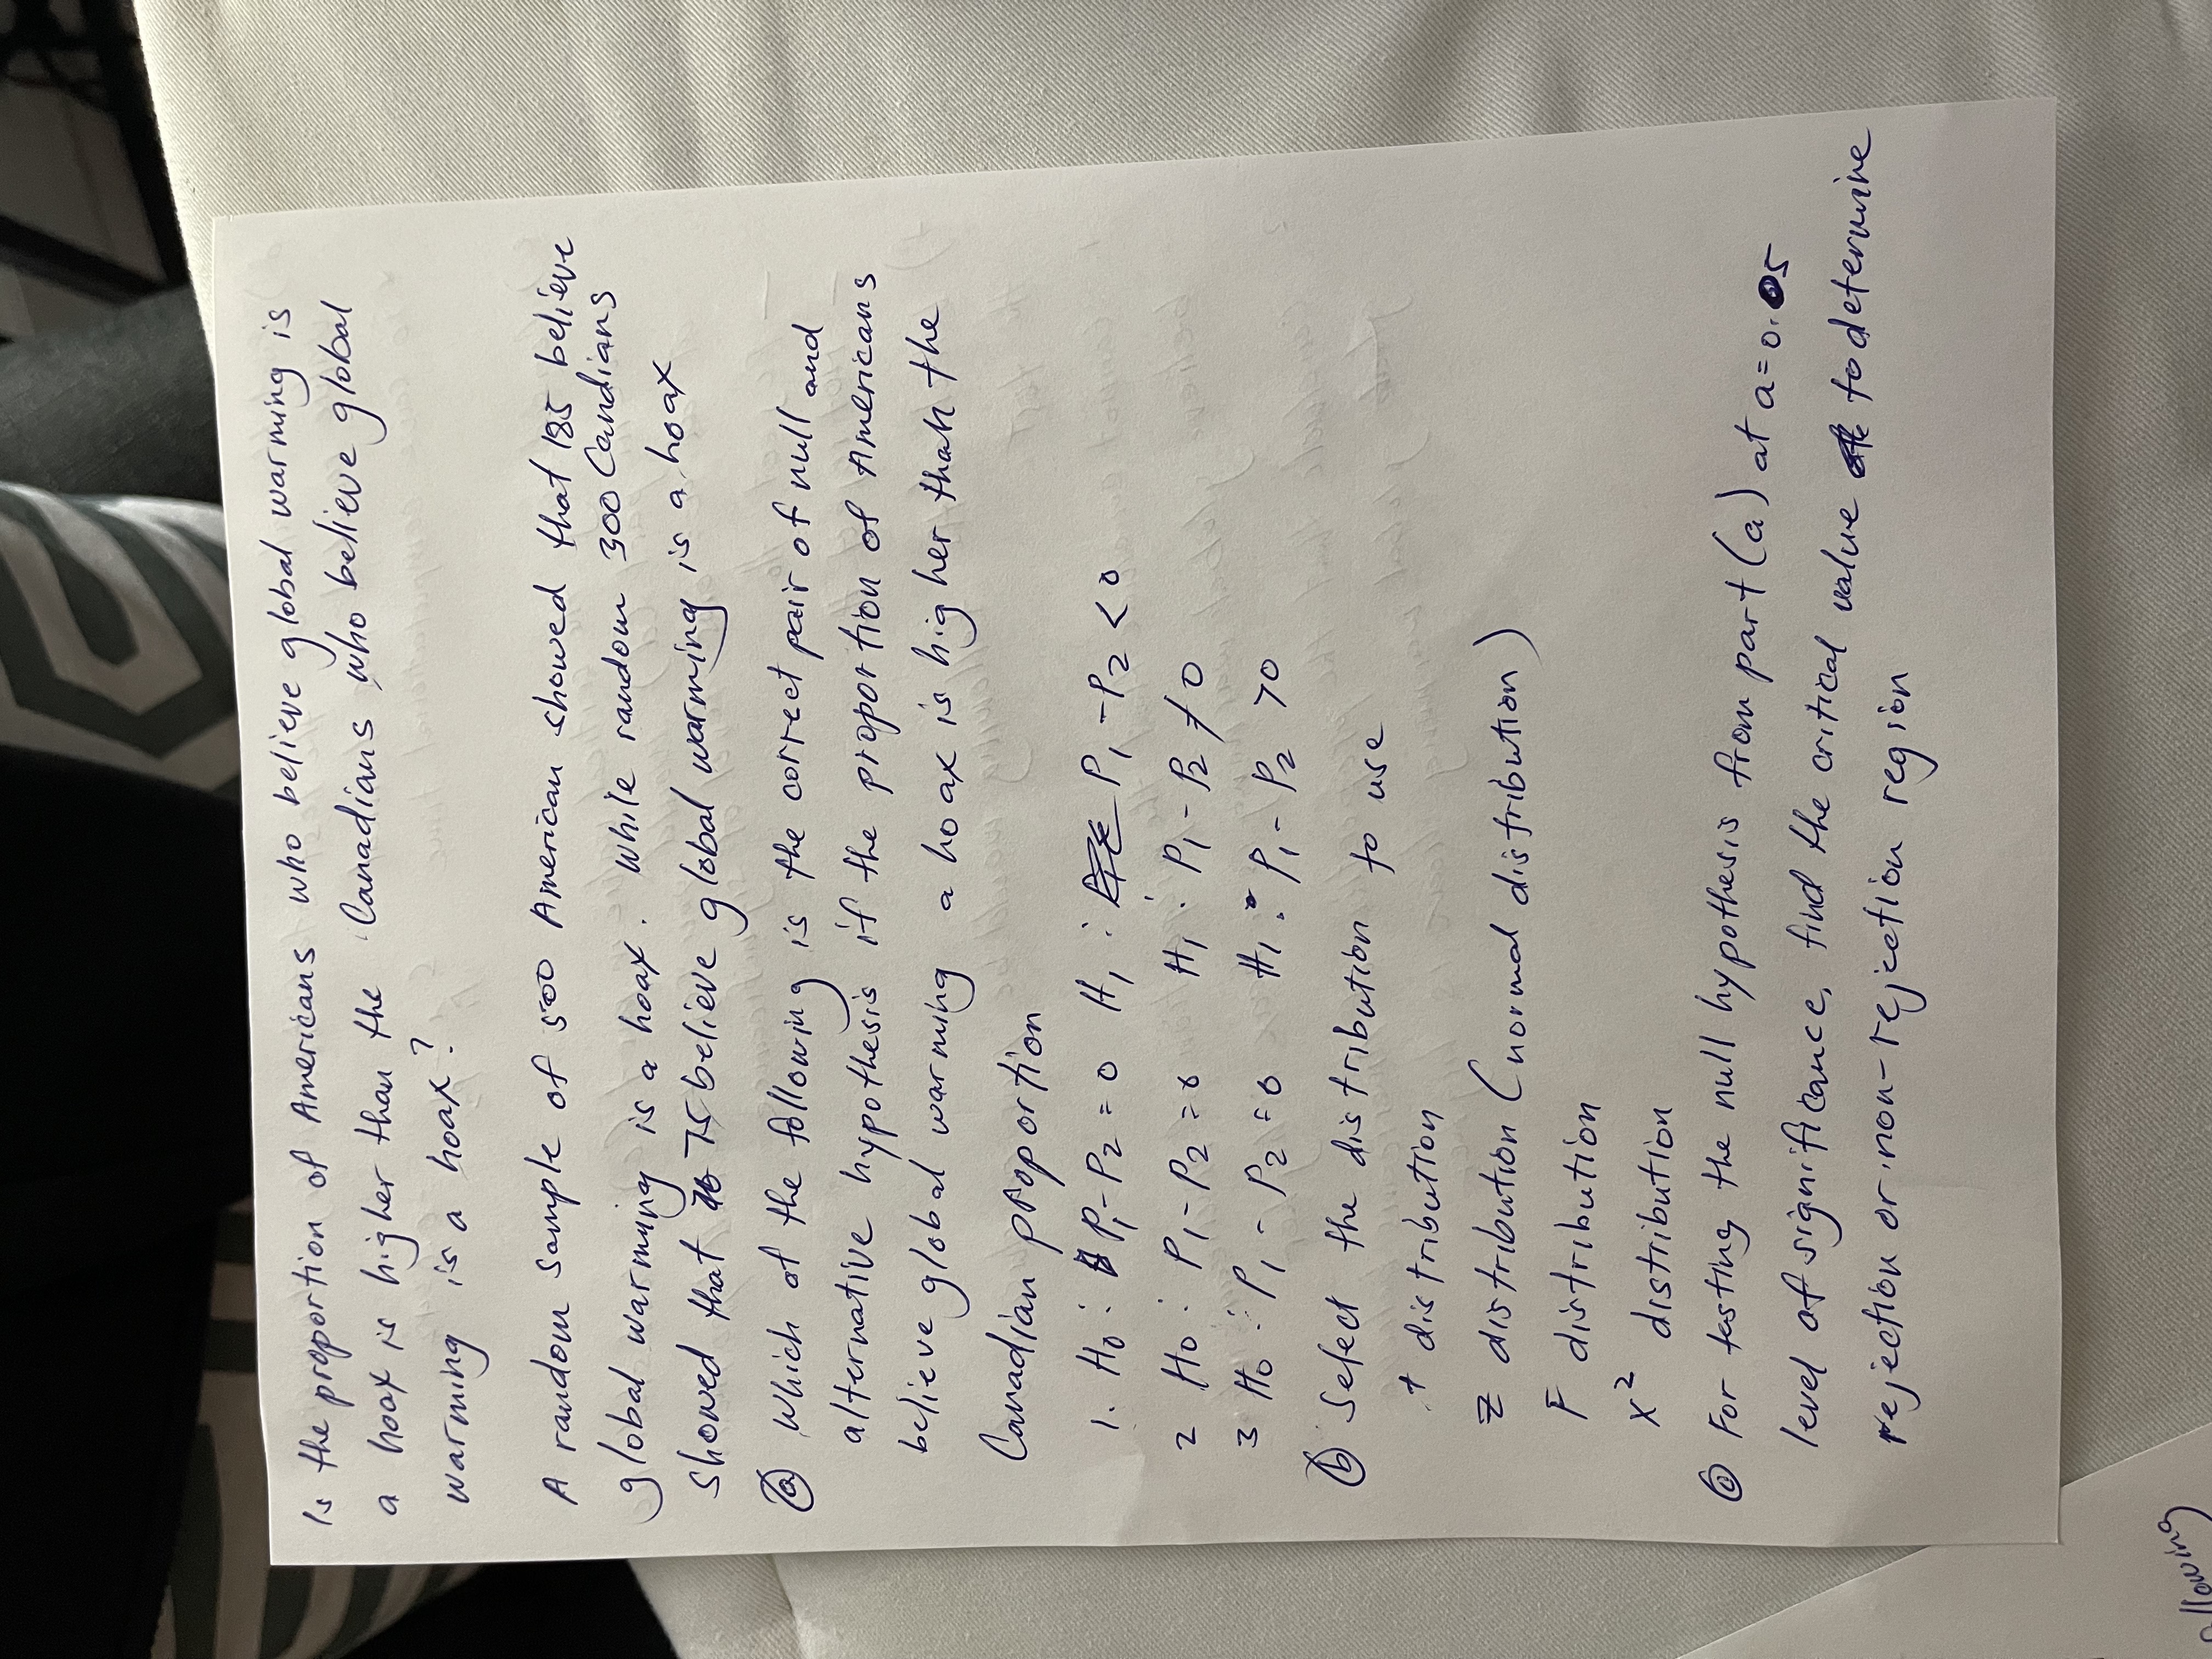 Is the proportion of Americans who believe global warming is
a hoax is higher than the Canadians who believe global
warming is a hoax?
A random sample of 500 American showed that 185 believe
global warming is a hoax. while random 300 Candians
showed that 75 believe global warming is a hoax
(a) which of the following is the correct pair of null and
alternative hypothesis if the proportion of Americans
believe global warming a hoax is higher than the
Canadian proportion
1. H0: P1-P2 = 0 H1: P1-P2 < 0
2 H0: P1-P2 = 0 H1: P1-P2 ≠ 0
3 H0: P1-P2 = 0 H1: P1-P2 > 0
(b) Select the distribution to use
t distribution
Z distribution (normal distribution)
F distribution
X² distribution
(c) For testing the null hypothesis from part (a) at a = 0.05
level of significance, find the critical value to determine
rejection or non-rejection region